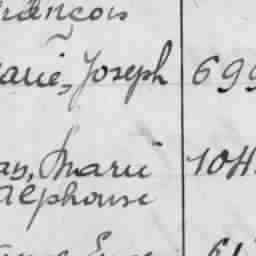 François
arie, Joseph 699
as, Marie 104
Alphonse